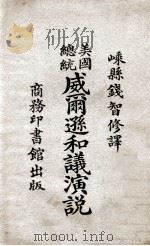 嵊縣錢智修譯
美國總統威爾遜和議演說
商務印書館出版